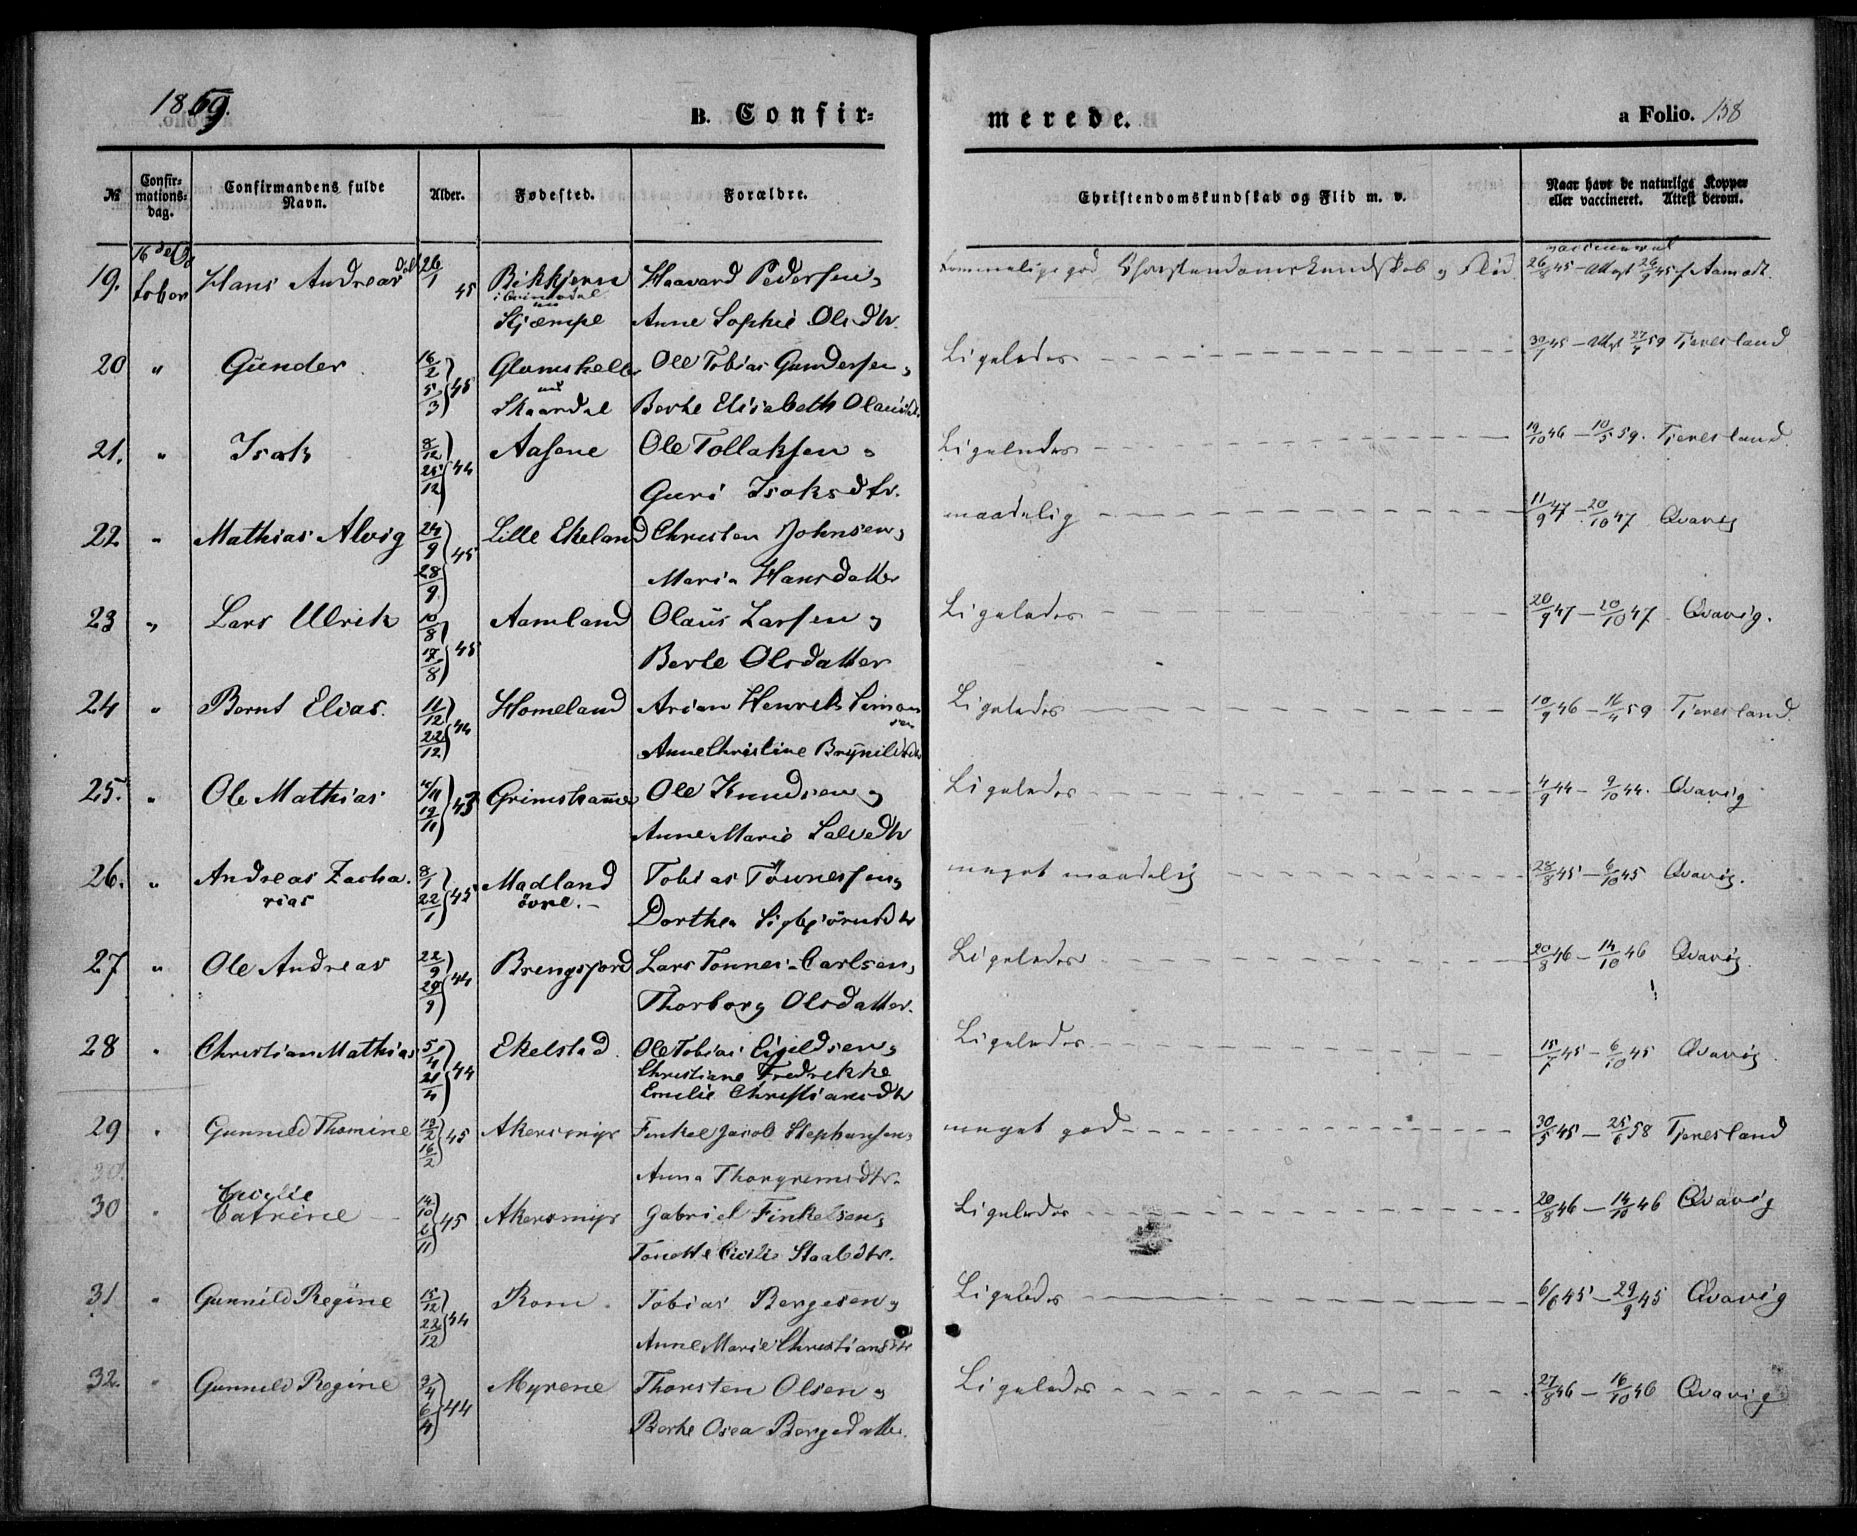 1859.
B. Confir=
merede.
a Folio. 158
№ Confir= mations= dag. Confirmandens fulde Navn. Alder. Fødested. Forældre. Christendomskundskab og Flid m. v. Naar havt de naturlige Kopper eller vaccineret. Attest derom.
19. 16de Oc tober Hans Andreas 26/1 45 Birkjern Haavard Pedersen, god Christendomskundskab og Flid. vaccineret 26/8 45 – Attest 26/9 45 f Aamodt.
nu Skjæmpe Anne Sophie Olsdtr.
20 " Gunder 16/2 5/3 45 Ole Tobias Gundersen, Ligeledes 30/7 45 – Attest 27/4 59 Tjeresland
nu Skaardal Berte Elisabeth Olausdtr.
21. " Isak 8/12 25/12 44 Aasene Ole Tollaksen, Ligeledes 19/10 46 – 10/5 59. Tjeresland
Guri Isaksdtr.
22 " Mathias Alvig 24/9 28/9 45 Lille Ekeland Christen Johnsen, maadelig 11/9 47 – 20/10 47 Qvavig
Maria Hansdatter
23 " Lars Ulrik 10/8 17/8 45 Aamland Olaus Larsen, Ligeledes 20/9 47 – 20/10 47 Qvavig.
Berte Olsdatter
24 " Bernt Elias. 11/12 22/12 44 Homeland Arian Henrik Simon sen Ligeledes 10/9 46 – 16/4 59 Tjeresland.
Anne Christine Brynildsdtr
25. " Ole Mathias 4/11 19/11 43 Grimshamer Ole Knudsen, Ligeledes 4/9 44 – 9/10 44. Qvavig
Anne Marie Salvedtr
26. " Andreas Zacha. rias 8/1 22/1 45 Madland övre. Tobias Tönnesen, meget maadelig 28/8 45 – 6/10 45 Qvavig.
Dorthea Sigbjörnsdtr
27 " Ole Andreas 22/9 29/9 44 Brengsfjord Lars Tonnes Carlsen, Ligeledes 20/8 46 – 14/10 46 Qvavig.
Thorborg Olsdatter.
28 " Christian Mathias 5/4 21/4 44 Ekelstad. Ole Tobias Eigildsen, Ligeledes 15/7 45 – 6/10 45 Qvavig.
Christiane Fredrikke
Emelie Christiansdtr
29 " Gunnild Thomine 13/2 16/2 45 Akersmyr Finkel Jacob Stephansen, meget god 30/5 45 – 25/6 58 Tjeresland
Anna Thorgrimsdtr.
30 " Cecilie Catrine 14/10 2/11 45 Akersmyr Gabriel Finkelsen, Ligeledes 20/8 46 – 14/10 46 Qvavig
Tonette Cicilie Staaledtr.
31 " Gunnild Regine 15/12 22/12 44 Rom Tobias Bergesen, Ligeledes 6/6 45 – 29/9 45 Qvavig
Anne Marie Christiansdtr
32. " Gunnild Regine 3/4 6/4 44 Myrene Thorsten Olsen, Ligeledes 27/8 46 – 16/10 46 Qvavig
Berte Osea Bergedatter